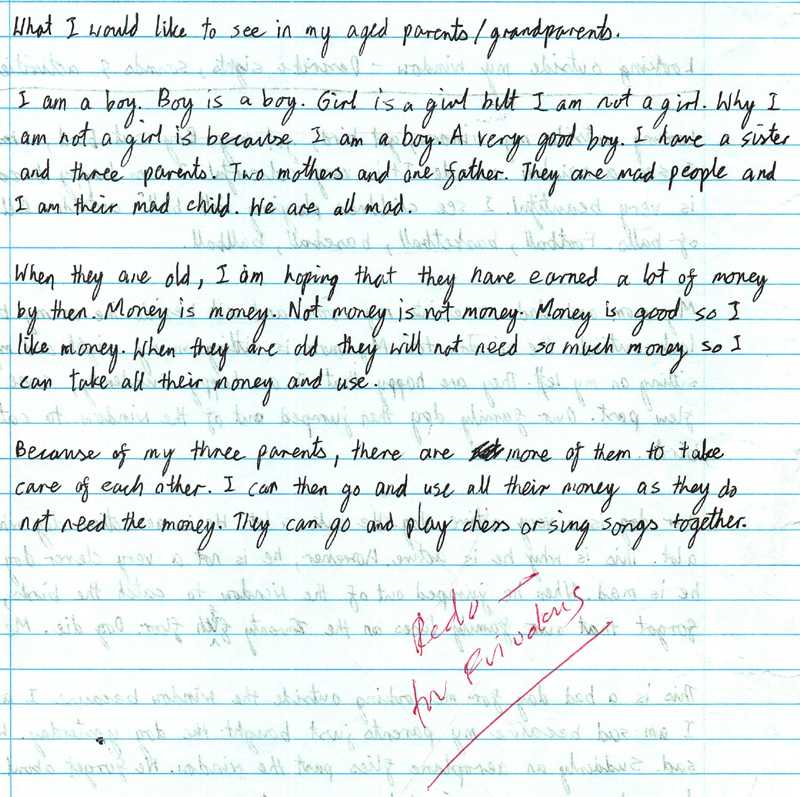 What I would like to see in my aged parents/grandparents.
I am a boy. Boy is a boy. Girl is a girl but I am not a girl. Why I
am not a girl is because I am a boy. A very good boy. I have a sister
and three parents. Two mothers and one father. They are mad people and
I am their mad child. We are all mad.
When they are old, I am hoping that they have earned a lot of money
by then. Money is money. Not money is not money. Money is good so I
like money. When they are old they will not need so much money so I
can take all their money and use.
Because of my three parents, there are more of them to take
care of each other. I can then go and use all their money as they do
not need the money. They can go and play chess or sing songs together.
Redo